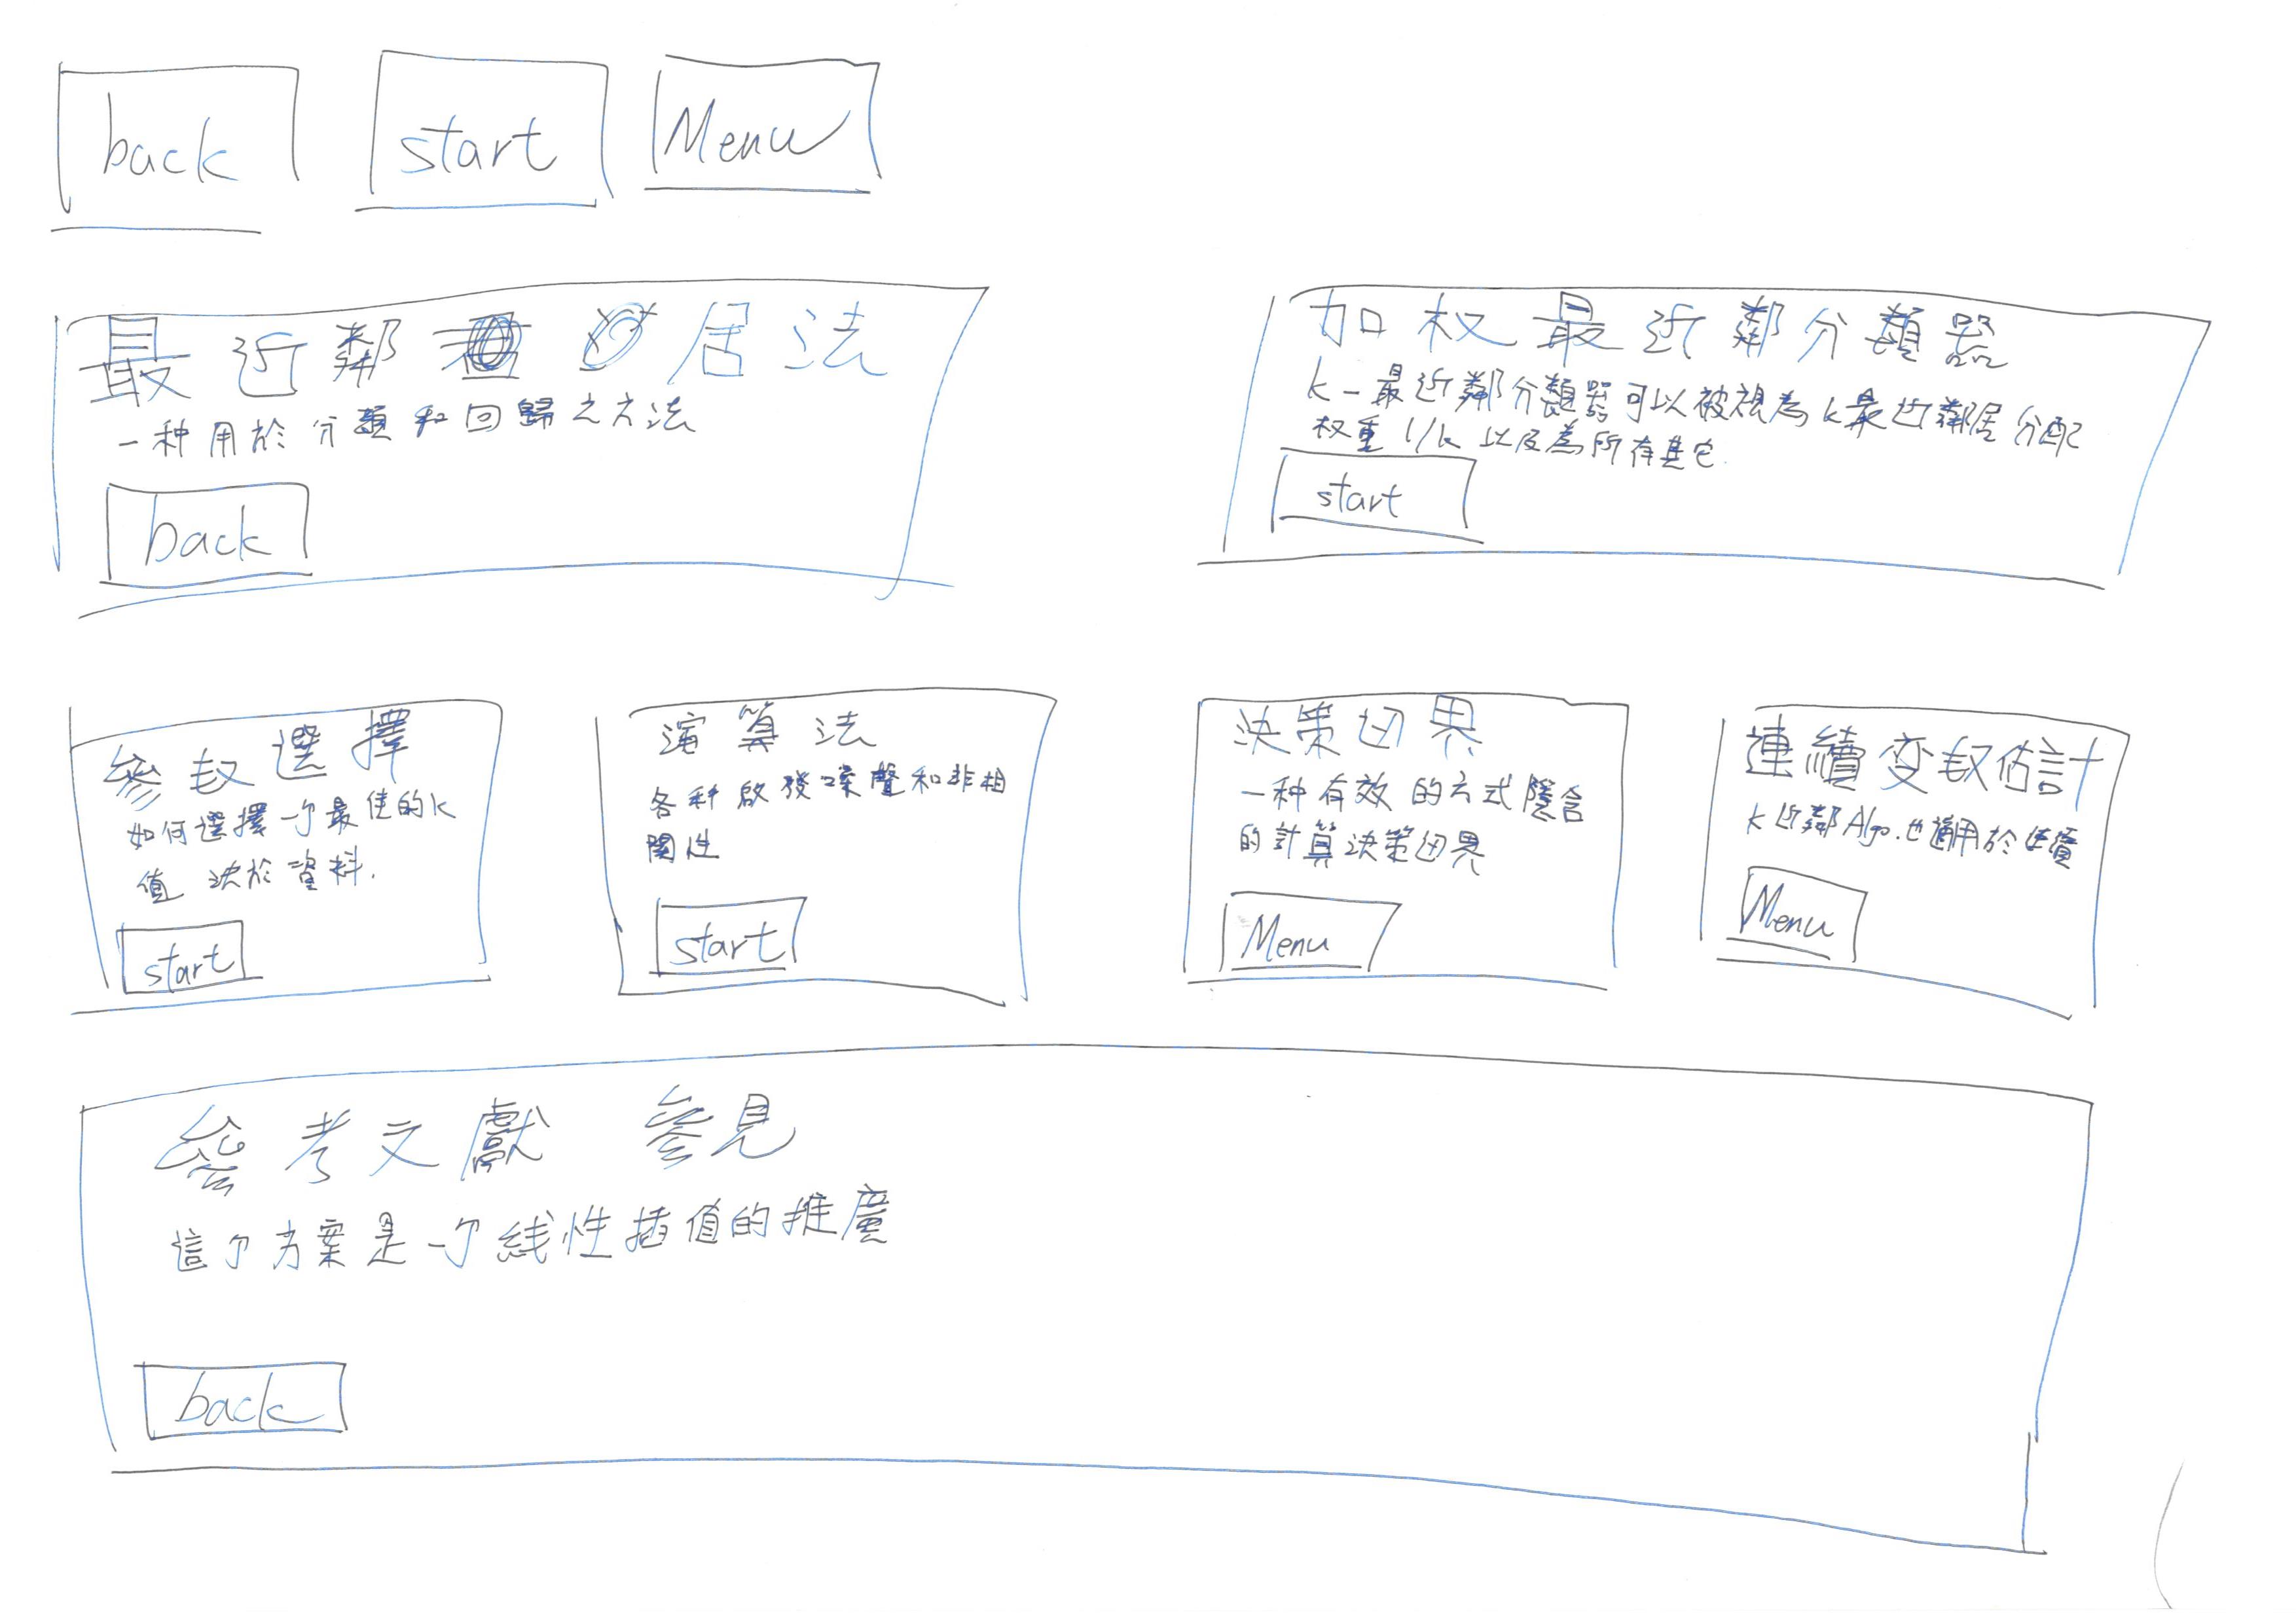 back
start
Menu
最近鄰居法
一种用於分類和回歸之方法
back
加权最近鄰分類器
k-最近鄰分類器可以被視為k最近鄰居分配
权重1/k以及為所有其它
start
參数選擇
如何選擇一个最佳的k
值 決於資料.
start
演算法
各种啟發噪聲和非相
關性
start
決策边界
一种有效的方式隱含
的計算決策边界
Menu
連續变数估計
k近鄰Algo.也適用於連續
Menu
參考文獻 參見
這个方案是一个线性插值的推廣
back